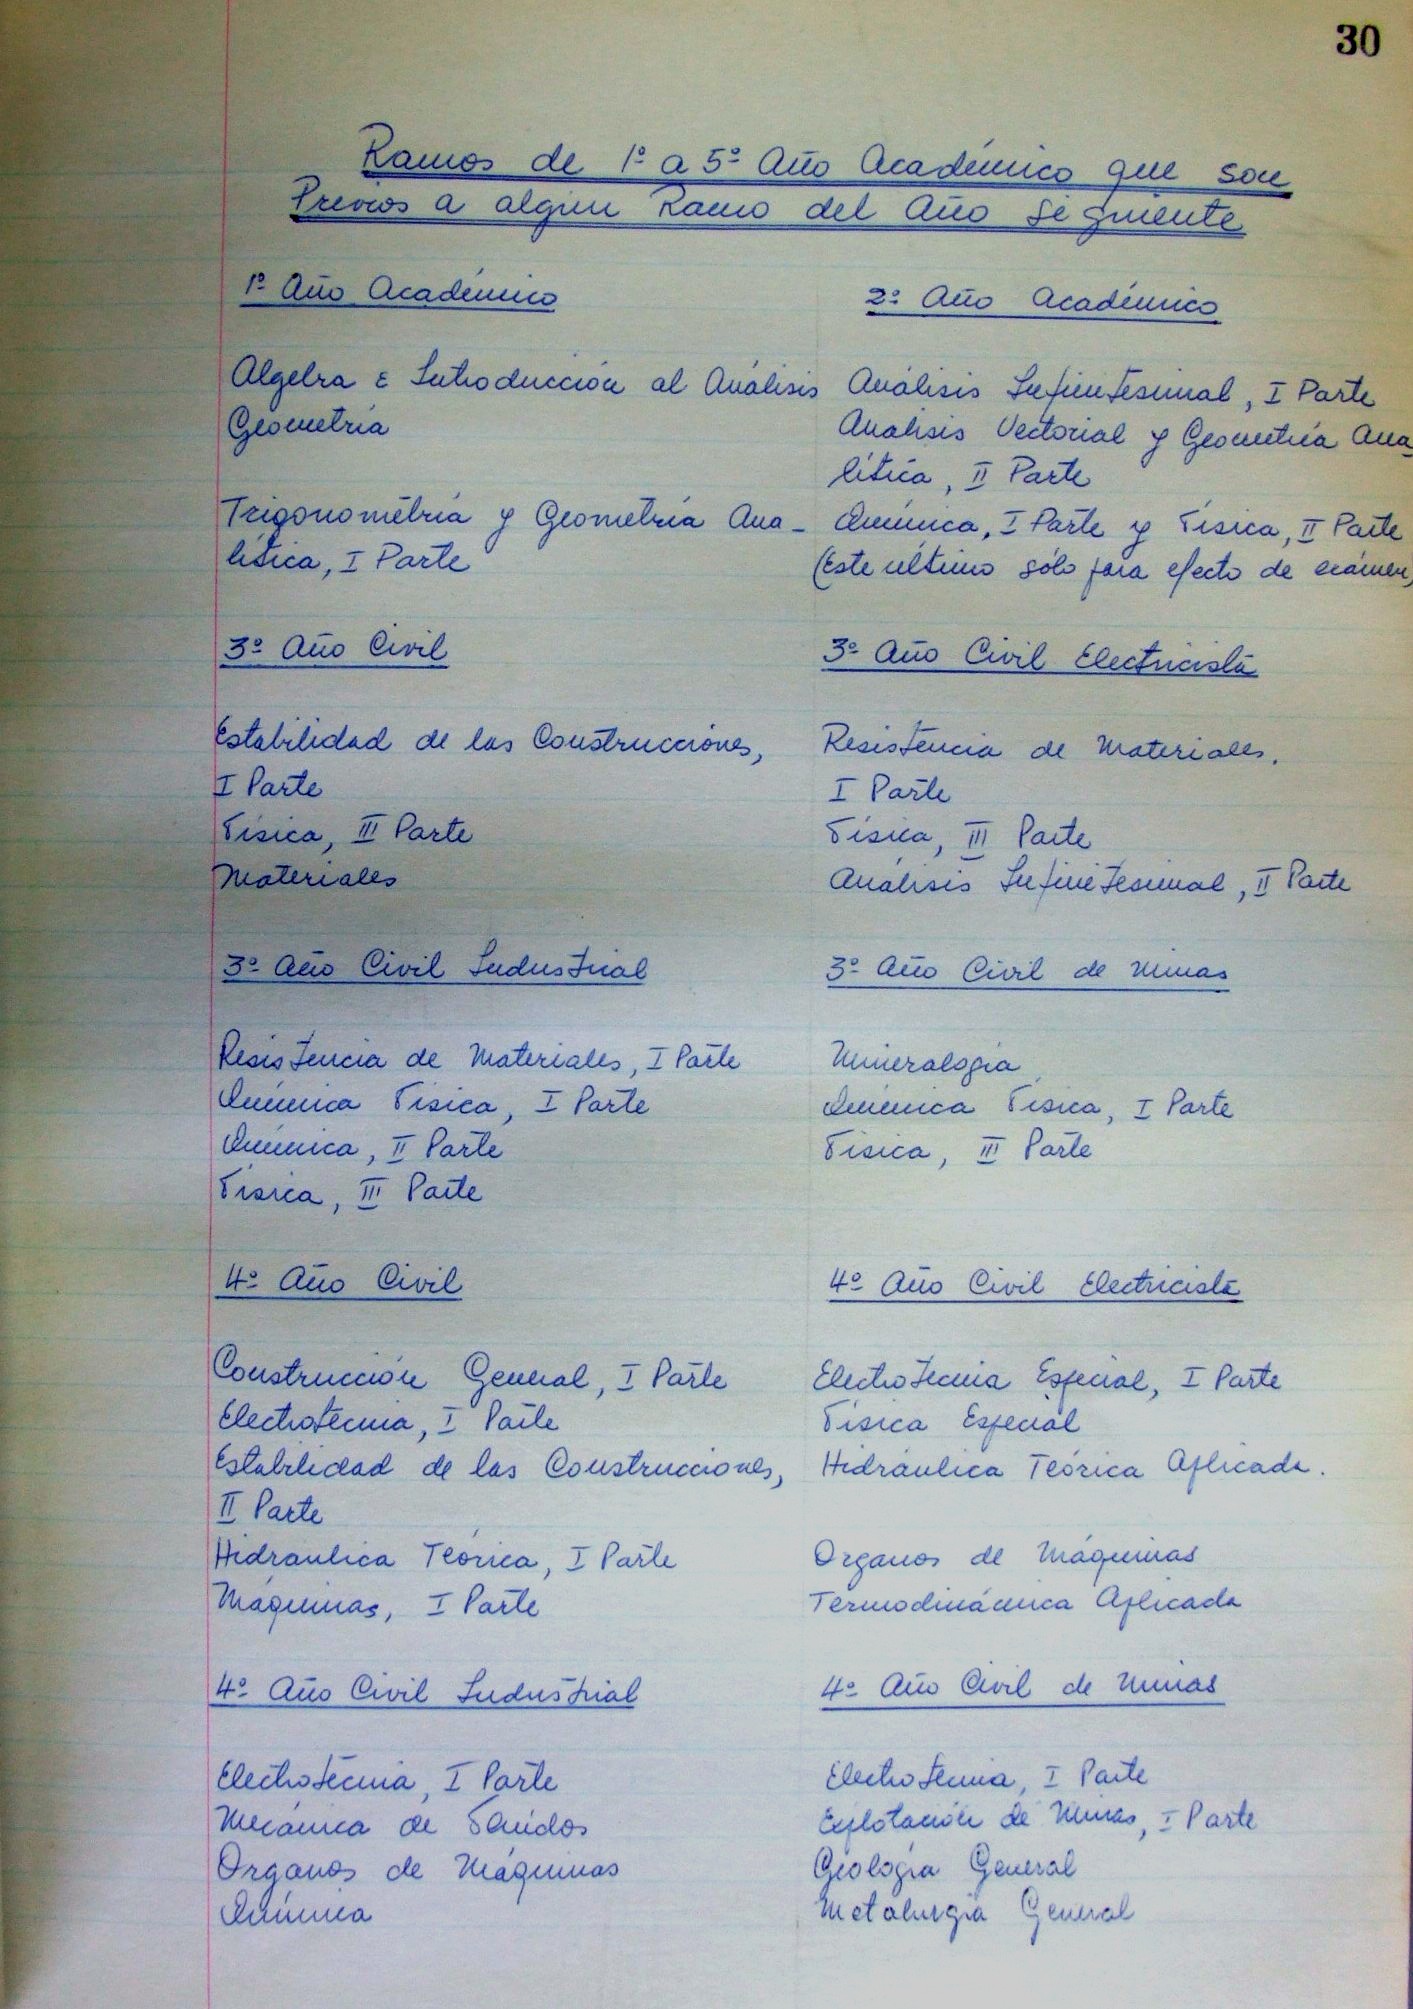 30
Ramos de 1º a 5º Año Académico que son
Previos a algún Ramo del Año Siguiente
1º Año Académico
Algebra e Introducción al Análisis
Geometría
Trigonometría y Geometría Ana-
lítica, I Parte
2º Año Académico
Análisis Infinitesimal, I Parte
Análisis Vectorial y Geometría Ana-
lítica, II Parte
Química, I Parte y Física, II Parte
(Este último sólo para efecto de exámen)
3º Año Civil
Estabilidad de las Construcciones,
I Parte
Física, III Parte
Materiales
3º Año Civil Electricista
Resistencia de Materiales.
I Parte
Física, III Parte
Análisis Infinitesimal, II Parte
3º Año Civil Industrial
Resistencia de Materiales, I Parte
Química Física, I Parte
Química, II Parte
Física, III Parte
3º Año Civil de Minas
Mineralogía
Química Física, I Parte
Física, III Parte
4º Año Civil
Construcción General, I Parte
Electrotécnia, I Parte
Estabilidad de las Construcciones,
II Parte
Hidraulica Teórica, I Parte
Máquinas, I Parte
4º Año Civil Electricista
Electrotecnia Especial, I Parte
Física Especial
Hidráulica Teórica Aplicada.
Organos de Máquinas
Termodinámica Aplicada
4º Año Civil Industrial
Electrotécnia, I Parte
Mecánica de Flúidos
Organos de Máquinas
Química
4º Año Civil de Minas
Electrotecnia, I Parte
Explotación de Minas, I Parte
Geología General
Metalurgia General